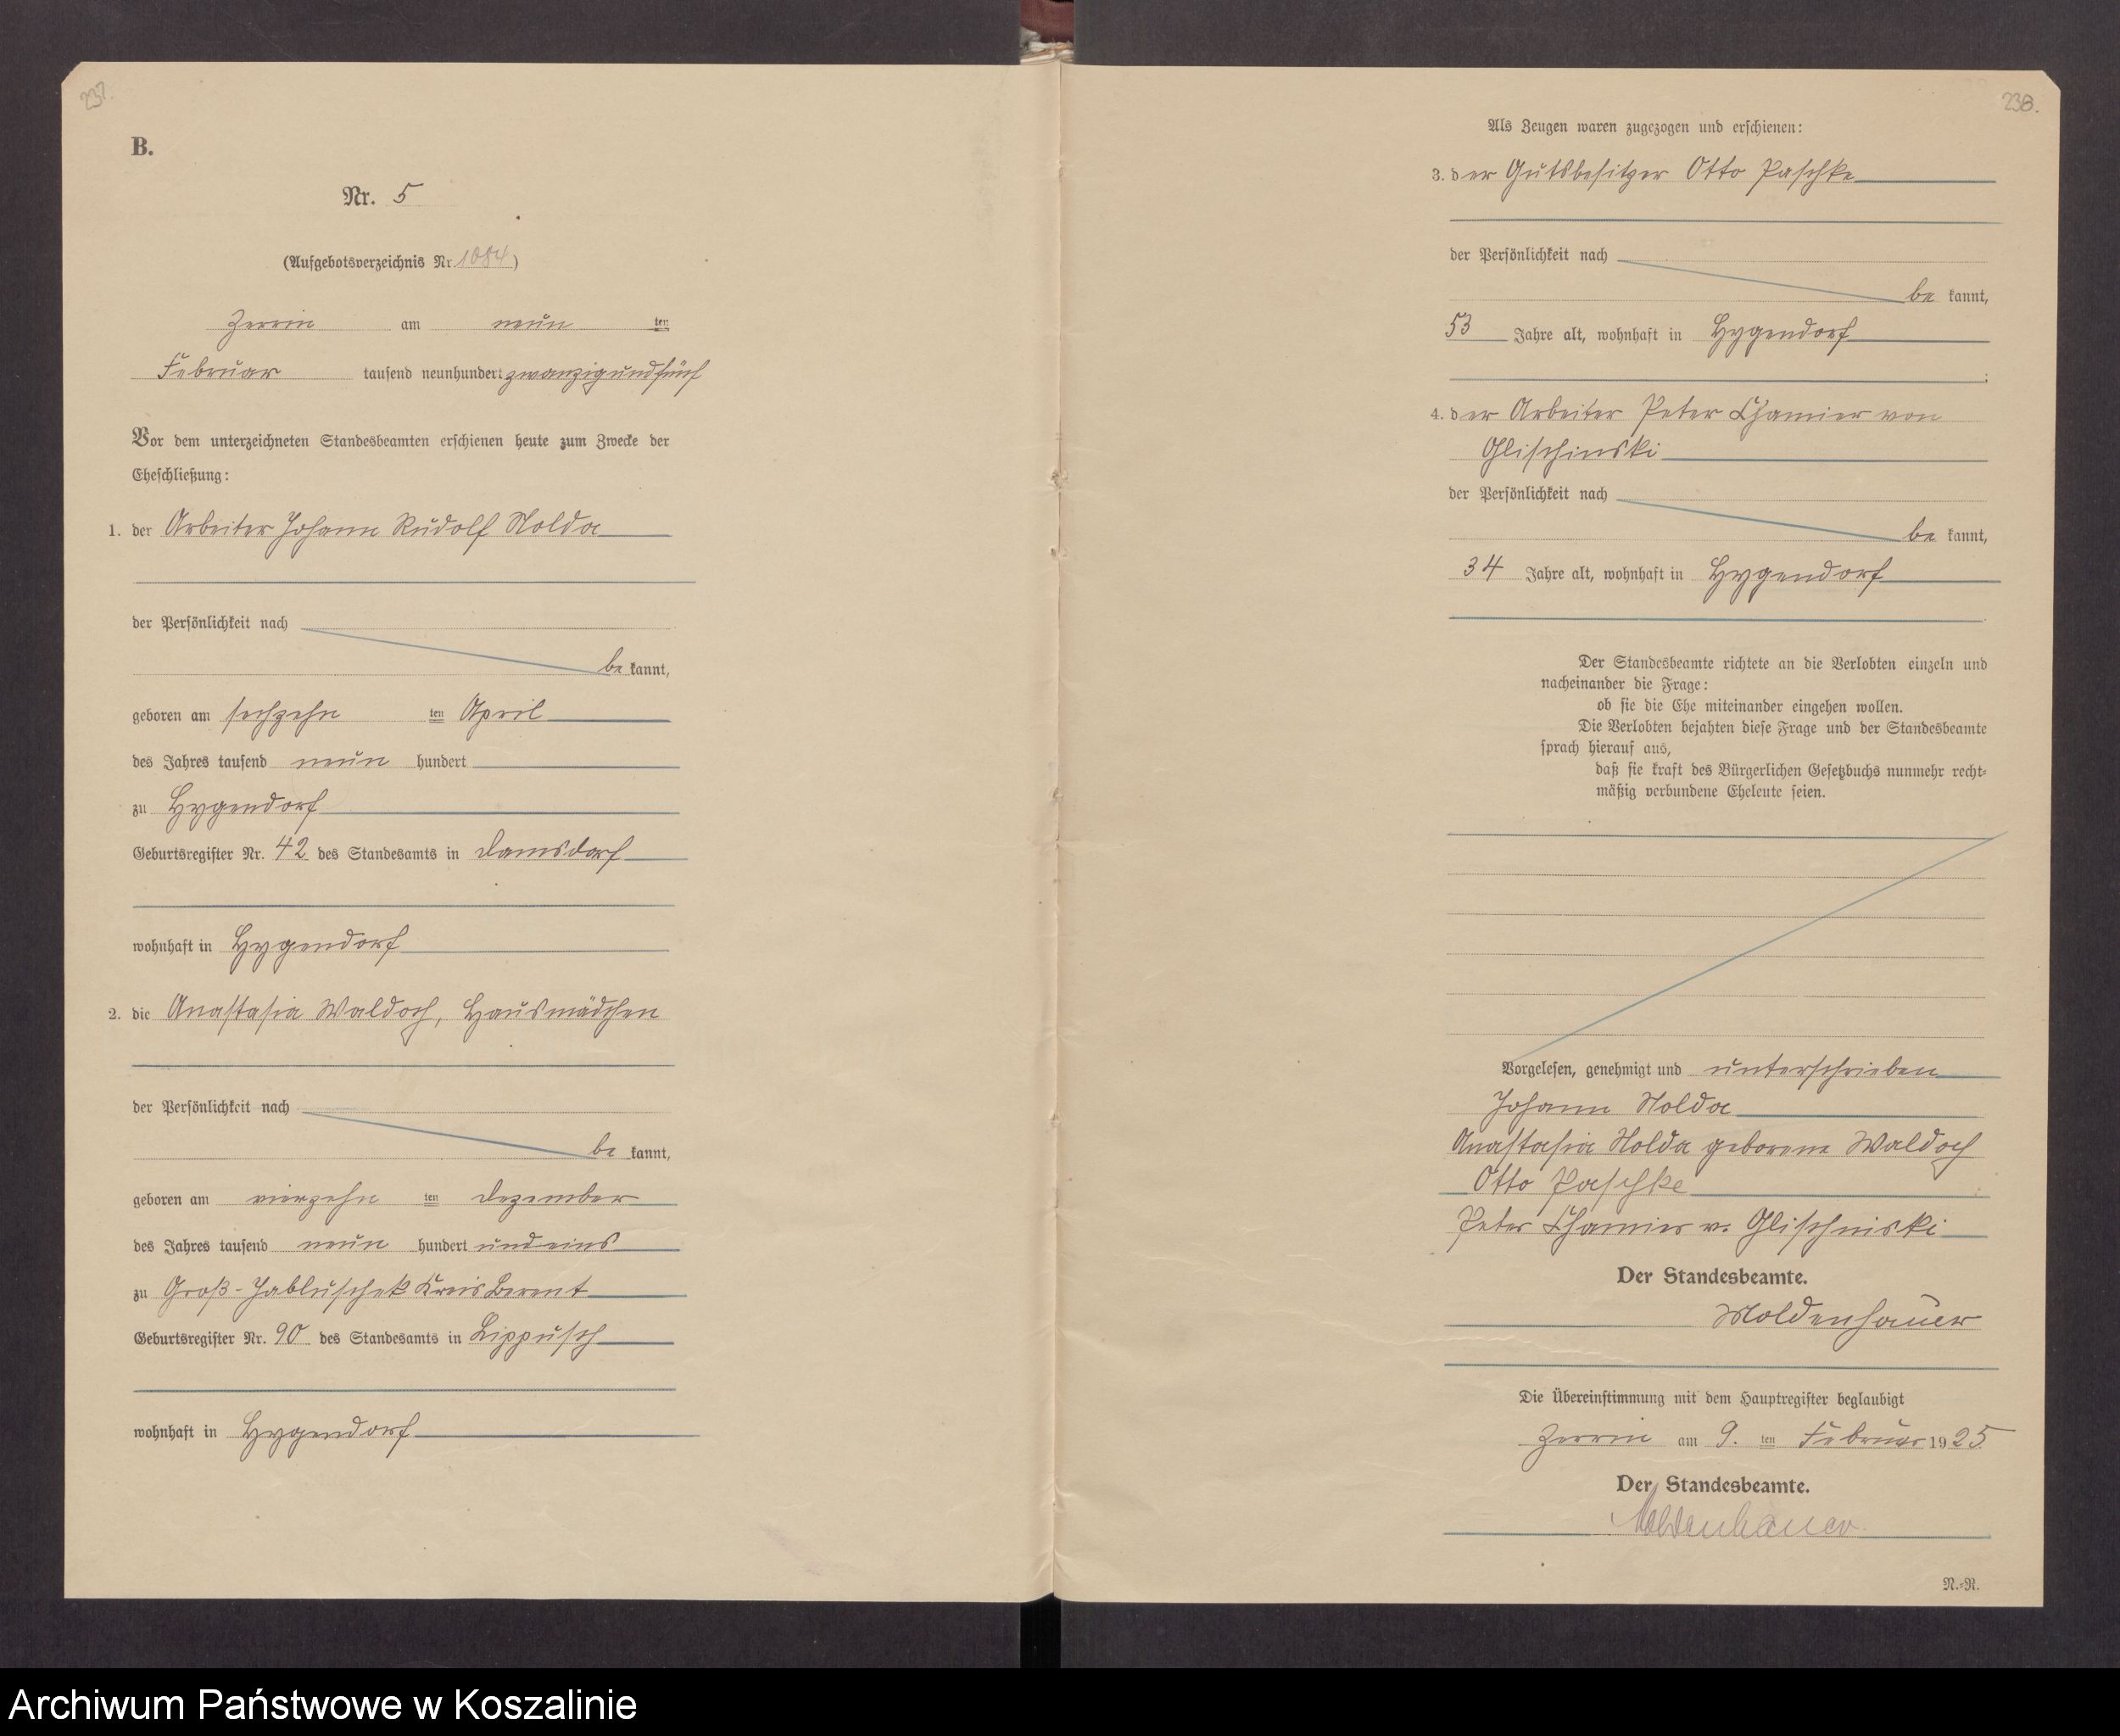 237.
B.
Nr. 5
(Aufgebotsverzeichnis Nr. 1084)
Zerrin am neun ten
Februar tausend neunhundert zwanzigundfünf
Vor dem unterzeichneten Standesbeamten erschienen heute zum Zwecke der
Eheschließung:
1. der Arbeiter Johann Rudolf Nolda
der Persönlichkeit nach
be kannt,
geboren am sechzehn ten April
des Jahres tausend neun hundert
zu Hygendorf
Geburtsregister Nr. 42 des Standesamts in Damsdorf
wohnhaft in Hygendorf
2. die Anastasia Waldoch, Hausmädchen
der Persönlichkeit nach
be kannt,
geboren am vierzehn ten Dezember
des Jahres tausend neun hundert und eins
zu Groß-Jabluschek Kreis Berent
Geburtsregister Nr. 90 des Standesamts in Lippusch
wohnhaft in Hygendorf
238.
Als Zeugen waren zugezogen und erschienen:
3. der Gutsbesitzer Otto Paschke
der Persönlichkeit nach
be kannt,
53 Jahre alt, wohnhaft in Hygendorf
;
4. der Arbeiter Peter Chamier von
Glischinski
der Persönlichkeit nach
be kannt,
34 Jahre alt, wohnhaft in Hygendorf
Der Standesbeamte richtete an die Verlobten einzeln und
nacheinander die Frage:
ob sie die Ehe miteinander eingehen wollen.
Die Verlobten bejahten diese Frage und der Standesbeamte
sprach hierauf aus,
daß sie kraft des Bürgerlichen Gesetzbuchs nunmehr recht-
mäßig verbundene Eheleute seien.
Vorgelesen, genehmigt und unterschrieben
Johann Nolda
Anastasia Nolda geborene Waldoch
Otto Paschke
Peter Chamier v. Glischniski
Der Standesbeamte.
Moldenhauer
Die Übereinstimmung mit dem Hauptregister beglaubigt
Zerrin am 9. ten Februar 1925
Der Standesbeamte.
Moldenhauer.
N.-R.
Archiwum Państwowe w Koszalinie